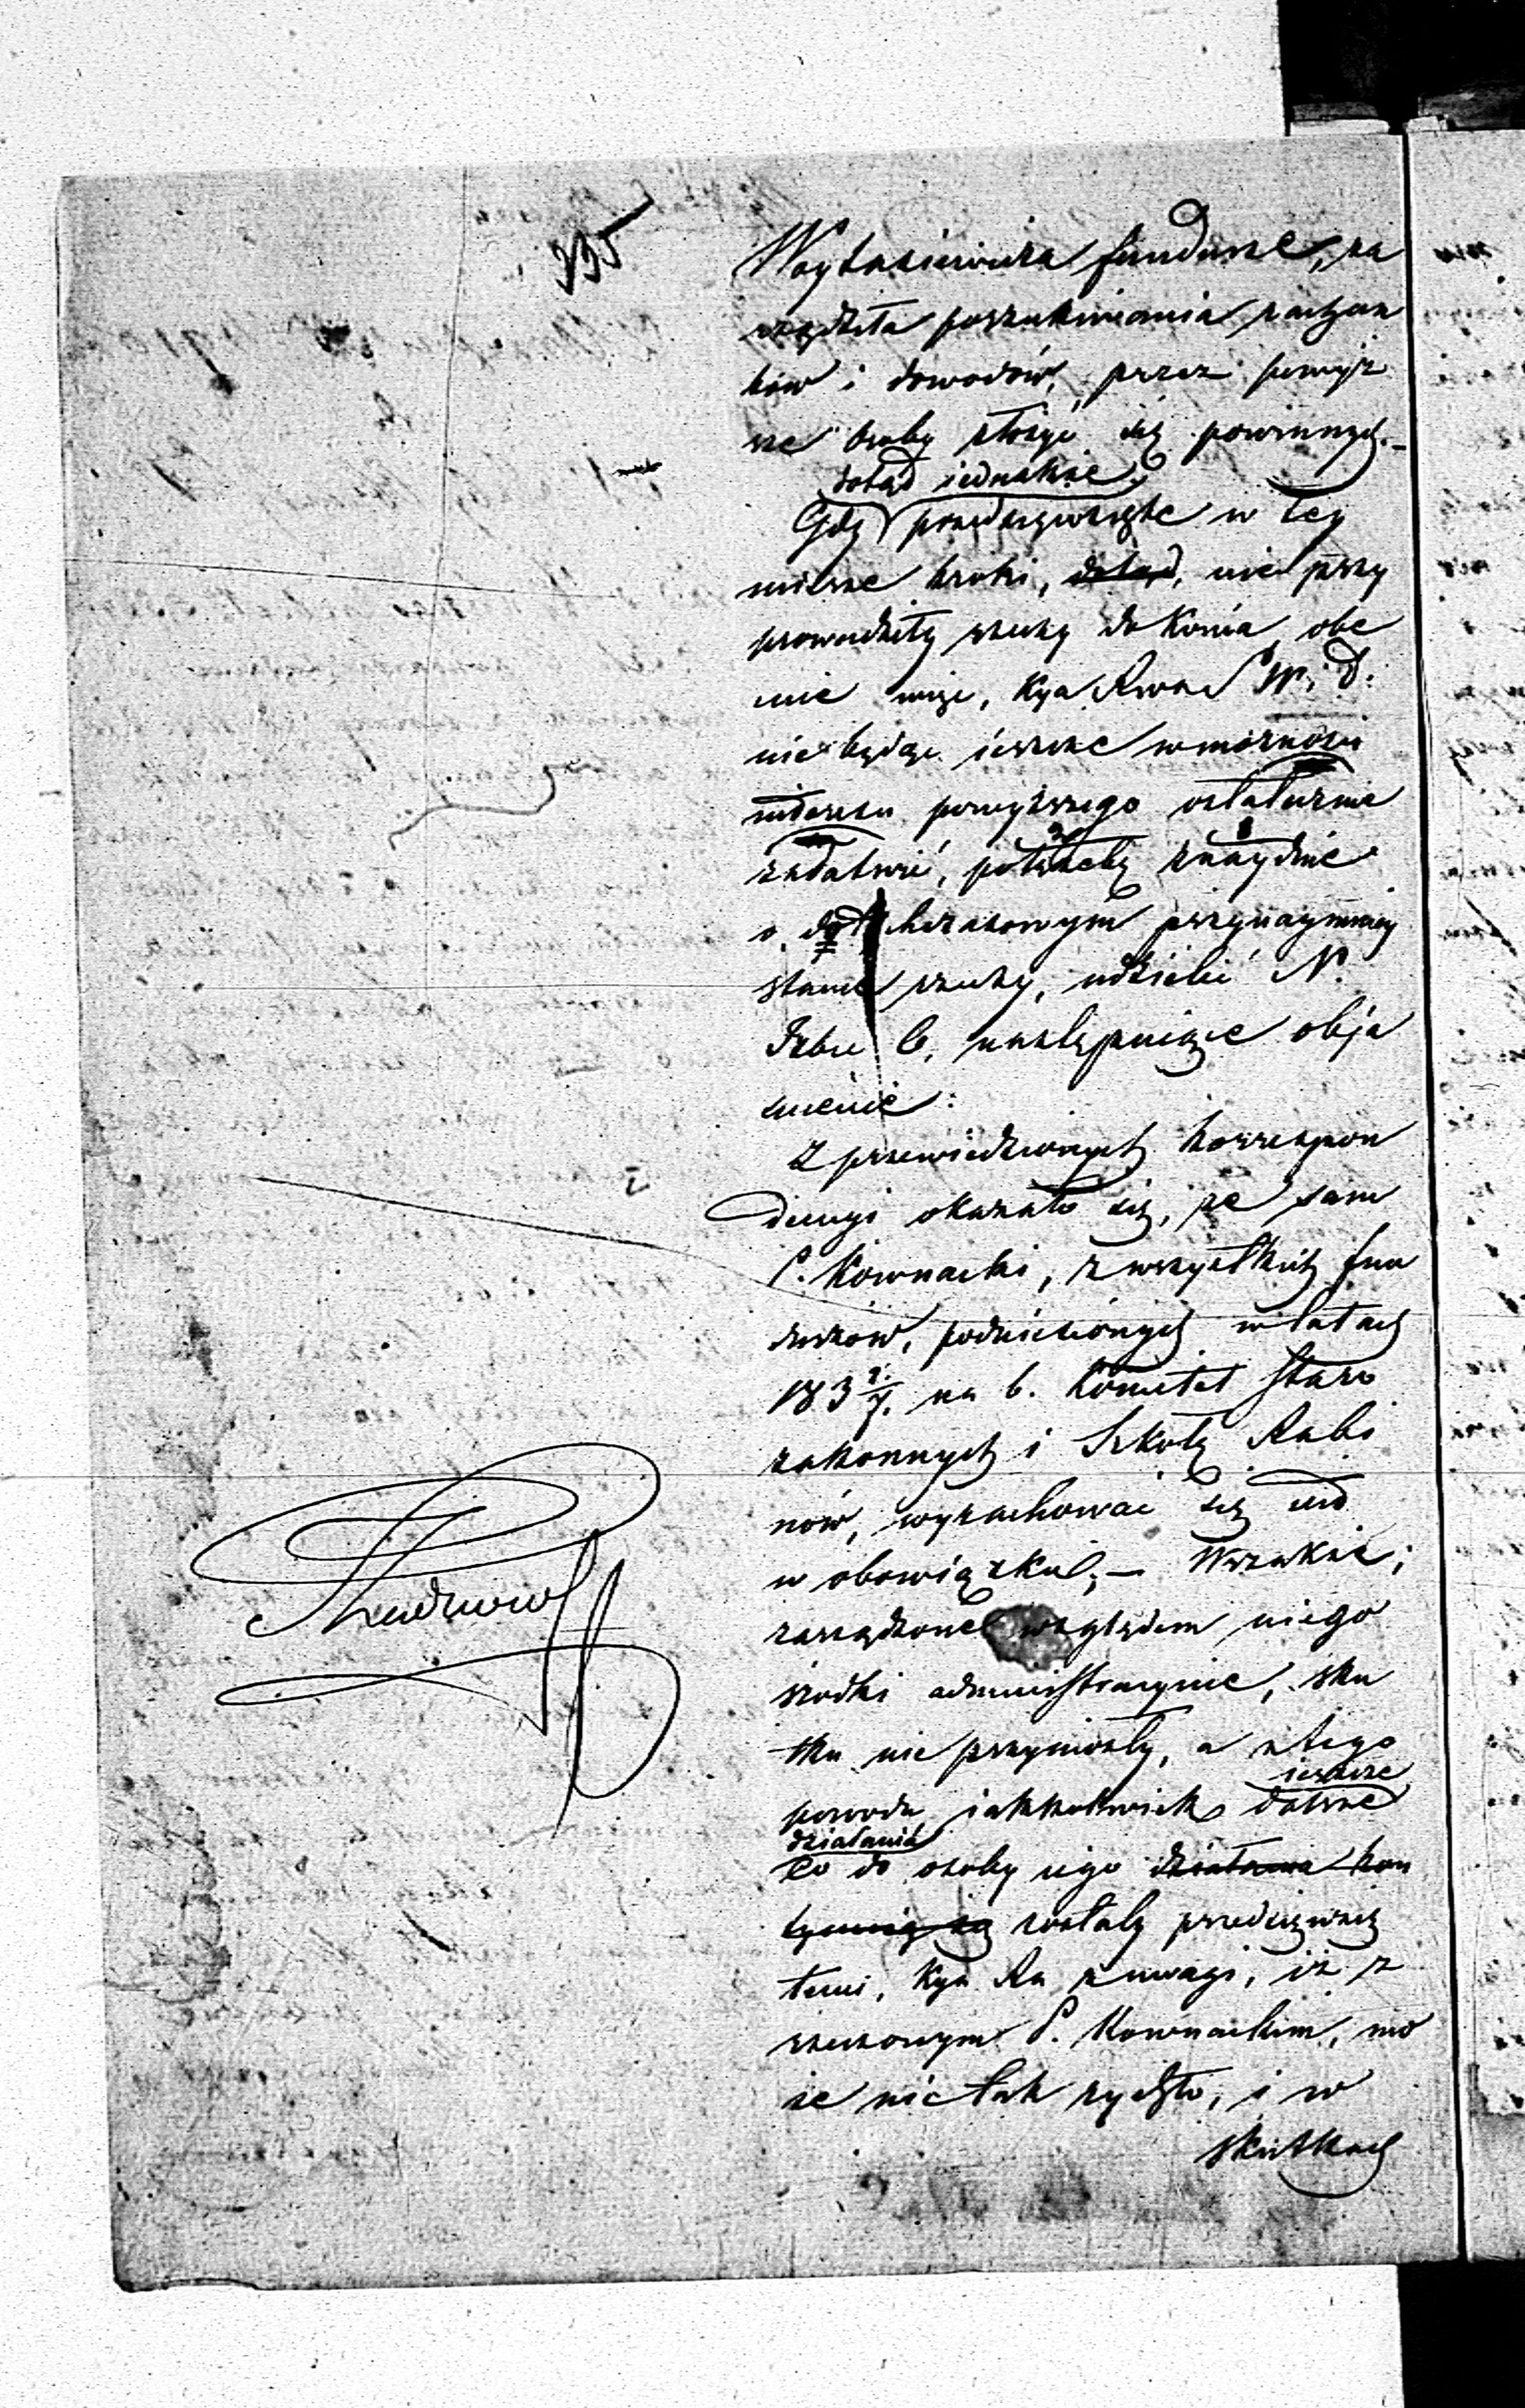 335
Woytasiewicza fundusze, za
rządziła poszukiwania rachun
ków i dowodów, przez powyż
sze osoby złożyć się powinnych.–
dotąd jednakże
Gdy przedsięwzięte w tey
mierze kroki, dotąd, nie przy
prowadziły rzeczy do końca, obe
cnie więc, Kya Rwa S W. i D.
nie będąc ieszcze w możności
interesu powyższego ostatecznie
załatwić, potrzebę znayduie
o dotychczasowym przynaymniey
stanie rzeczy, udzielić N.
Izbie O. następuiące obja
śnienie:
Z przewiedzionych korrespon
dencyi okazało się, że sam
P. Kownacki, z wszystkich fun
duszów, podniesionych w latach
183 na b. Komitet Staro
zakonnych i Szkołę Rabi
nów, wyrachować się iest
w obowiązku;– Wszakże;
zarządzone względem niego
środki administracyine, sku
tku nie przyniosły, a z tego
ieszcze
powodu iakkolwiek dalsze
działania
co do osoby iego działania kon
tynuią się zostały przedsięwzię
temi, Kya Ra z uwagi, iż z
rzeczonym P. Kownackim, mo
że nie tak rychło, i w
skutkach